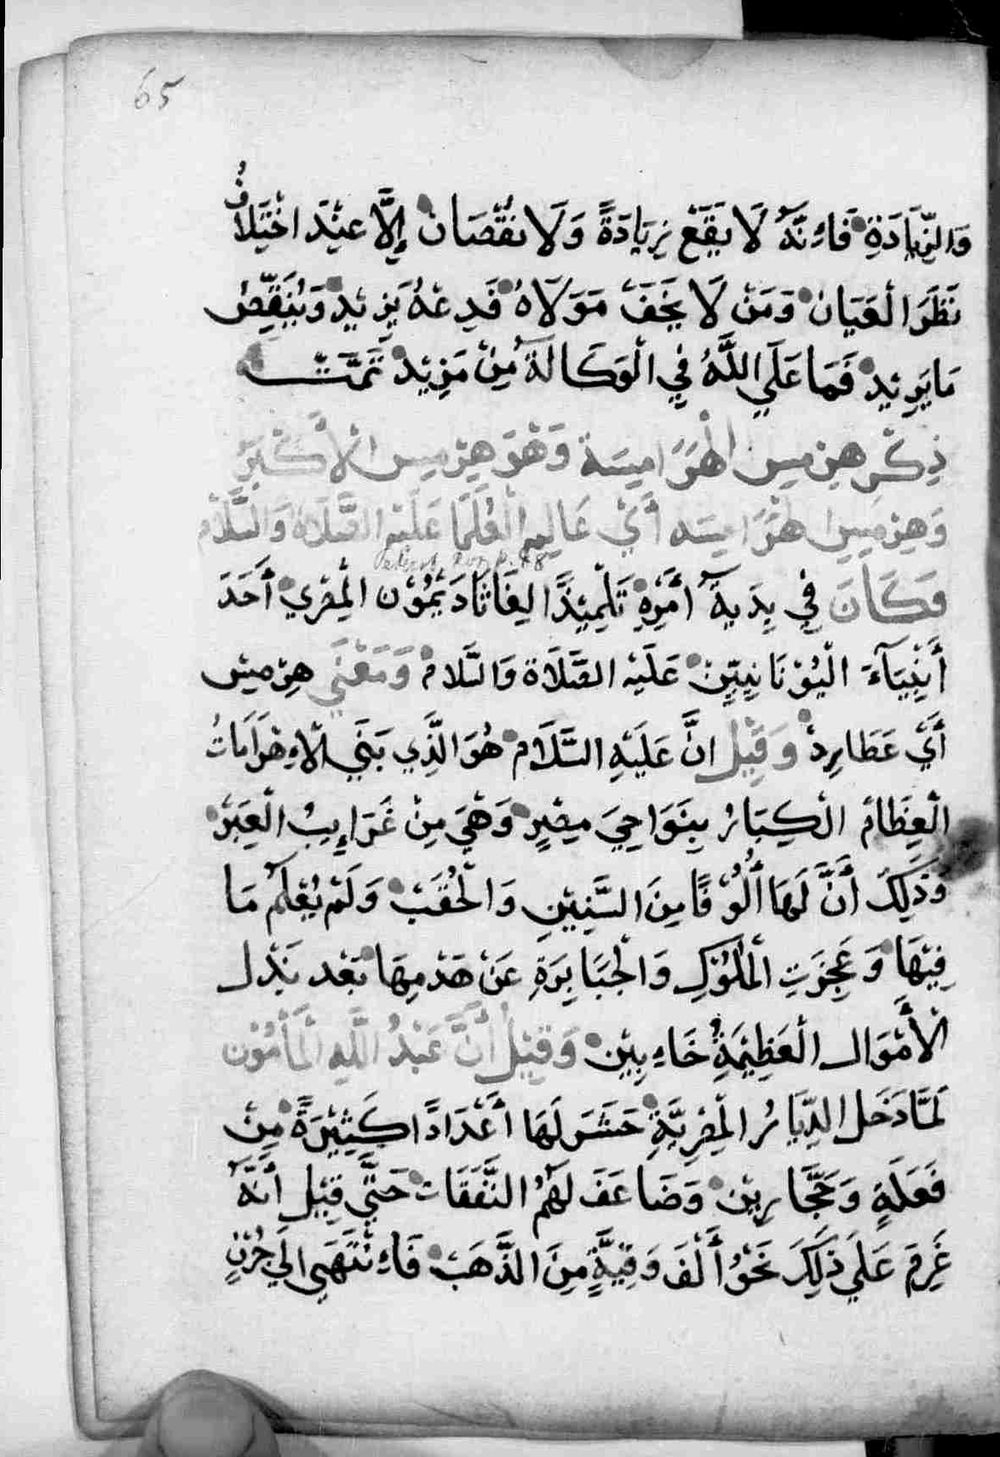 65
وَالزِّيَادَةِ فَاءِنَّهُ لَا يَقَعْ زِيَادَةً وَلَا نُقْصَانْ إِلَّا عِنْدَ اخْتِلَافُ
نَظَرَ الْعَيَانْ وَمَنْ لَا يَخَفْ مَوَلَاهُ فَدِعْهُ يَزِيْدْ وَيُنَقِّصْ
مَا يَرِيْدْ فَمَا عَلَي اللَّهُ فِي الْوَكَالَة مِنْ مَزِيْدْ تَمَّتْ
ذِكْر هِرْمِيس الْهَرَامِيسَة وَهْوَ هِرْمِيس الْأَكْبَرْ
وَهِرْمِيس هَرَامِيسَه أَيْ عَالِمِ الْعُلَمَا عَلَيْهِ الصَّلَاة وَالسَّلَام
وَكَانَ فِي بِدَيةَ أَمْرِهِ تَلْمِيْذًا لِغَاثَادَيْمُوْن الْمِصْرِي أَحَدَ
أَنْبِيَآءَ الْيُوْنَانِيِّيْن عَلَيْهِ الصَّلَاة وَالسَّلَامْ وَمَعْنَي هِرْمِيْس
أَيْ عَطَارِدْ وَقِيْل انَّ عَلَيْهِ السَّلَامْ هُوَ الَّذِي بَنَي الْاءِهْرَامَاتْ
الْعِظَامْ الْكِبَارْ بِنَوَاحِيَ مِصْرٍ وَهْيَ مِنْ غَرَايِبْ الْعِبَرْ
وَذَلِكَ أَنَّ لَهَا أُلُوْفًا مِنَ السَّنِيْنِ وَالْحُقَبْ وَلَمْ يُعْلَمْ مَا
فِيْهَا وَعَجِزَتِ الْمُلُوْكِ وَالْجَبَابِرَةِ عَنْ هَدْمِهَا بَعْد بَذْل
الْأَمْوَال الْعَظِيْمَةْ خَاءِبِيْنْ وَقِيْل أَنَّ عَبْدُ اللَّه الْمَأْمُوْن
لَمَّا دَخَل الدِّيَارْ الْمِصْرِيَّةِ حَشَرَ لَهَا أَعْدَادًا كَثِيْرَةً مِنْ
فَعَلَةٍ وَحَجَّارِيْنْ وَضَاعَفَ لَهُمْ النَّفَقَاتْ حَتَّي قِيْل أَنَّهُ
غَرِمَ عَلَي ذَلِكَ نَحْوُ أَلْفَ وَقِيَّةٍ مِنَ الذَّهَبْ فَاءِنْتَهَى الَي جُزْءٍ